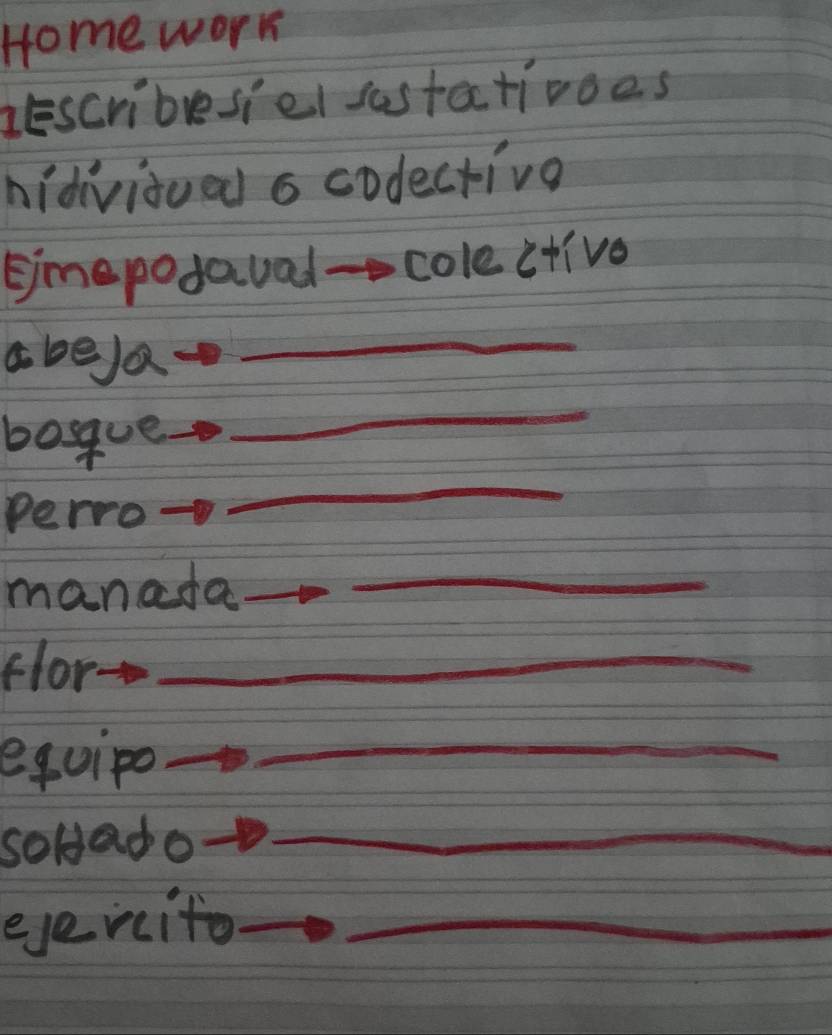 Homework
1Escribresi el sustativoes
nidividual o codectivo
Ejmepodaual → colectivo
abeja →
bosque →
perro →
manada →
flor →
equipo →
soldado →
ejercito →